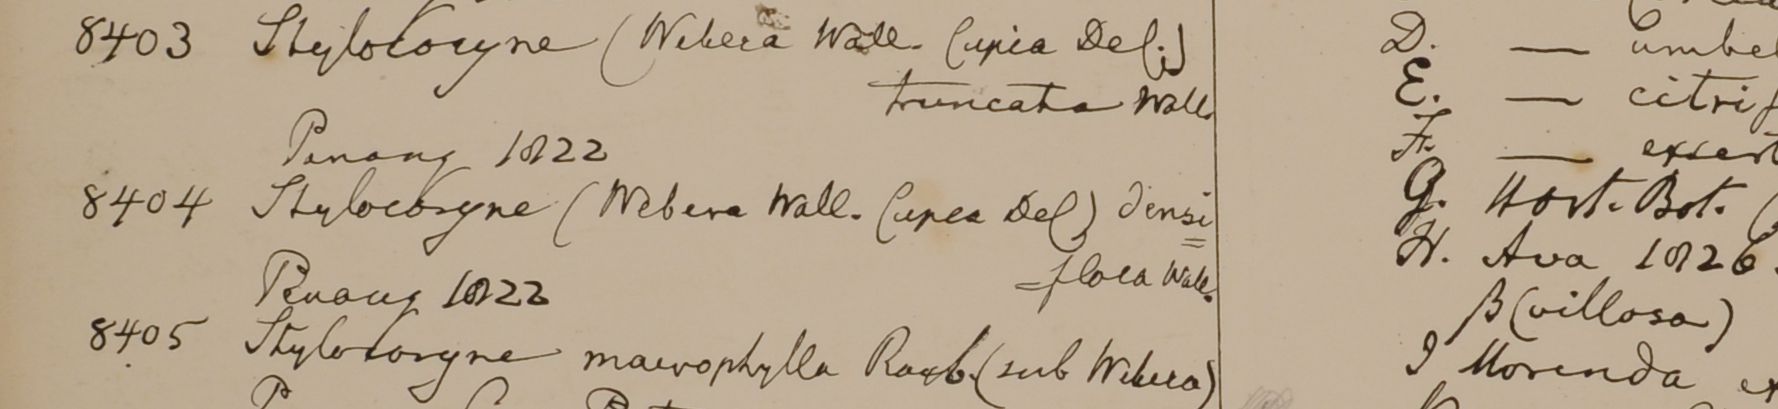 8403 Stylocoryne (Webera Wall. Cupia Dec.)
truncata Wall.
Penang 1822
8404 Stylocoryne (Webera Wall. Cupea Dec) densi
=flora Wall.
Penang 1822
8405 Stylocoryne macrophylla Roxb. (sub Webera)
D. — umbel
E. — citrif
F. — exsert
G. Hort. Bot.
H. Ava 1826.
β (villosa)
I Morinda ex